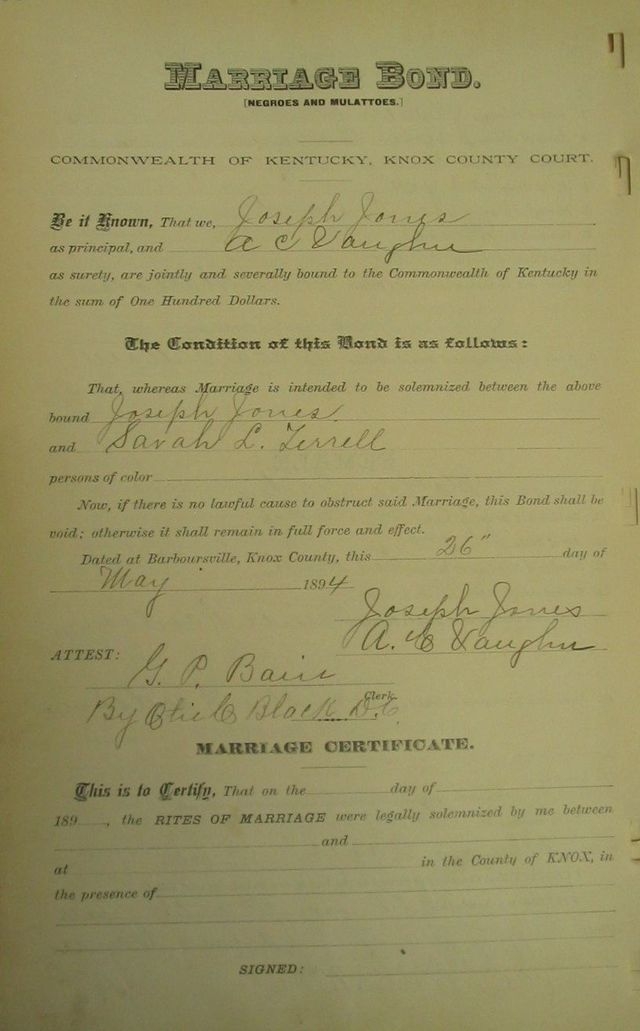 MARRIAGE BOND.
[NEGROES AND MULATTOES.]
COMMONWEALTH OF KENTUCKY, KNOX COUNTY COURT.
Be it Known, That we, Joseph Jones
as principal, and A C Vaughn
as surety, are jointly and severally bound to the Commonwealth of Kentucky in
the sum of One Hundred Dollars.
The Condition of this Bond is as follows:
That, whereas Marriage is intended to be solemnized between the above
bound Joseph Jones
and Sarah L. Terrell
persons of color
Now, if there is no lawful cause to obstruct said Marriage, this Bond shall be
void; otherwise it shall remain in full force and effect.
Dated at Barboursville, Knox County, this 26" day of
May 1894
Joseph Jones
A. C Vaughn
ATTEST:
G. P. Bain
Clerk.
By Black D.C.
MARRIAGE CERTIFICATE.
This is to Certify, That on the day of
189 , the RITES OF MARRIAGE were legally solemnized by me between
and
at in the County of KNOX, in
the presence of
SIGNED: